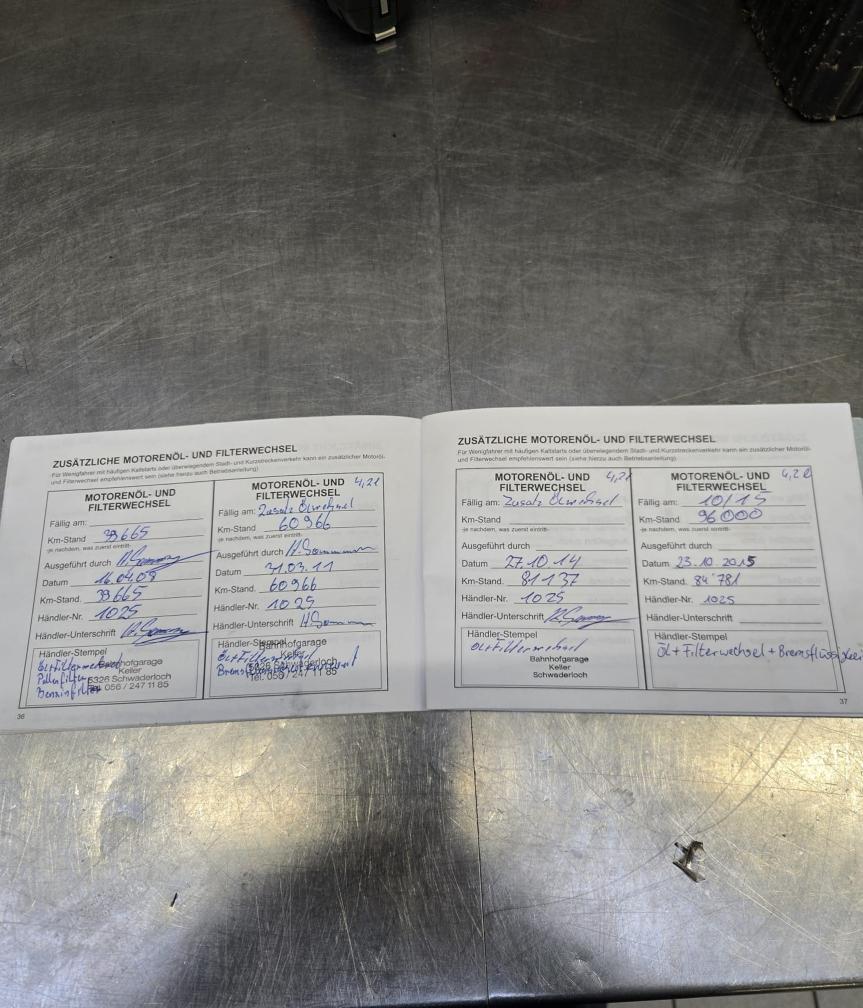 ZUSÄTZLICHE MOTORENÖL- UND FILTERWECHSEL
Für Wenigfahrer mit häufigen Kaltstarts oder überwiegendem Stadt- und Kurzstreckenverkehr kann ein zusätzlicher Motoröl-
und Filterwechsel empfehlenswert sein (siehe hierzu auch Betriebsanleitung)
MOTORENÖL- UND
FILTERWECHSEL
Fällig am:
Km-Stand 39665
-je nachdem, was zuerst eintritt-
Ausgeführt durch
Datum 16.04.09
Km-Stand. 39665
Händler-Nr. 1025
Händler-Unterschrift
Händler-Stempel
Öl+Filterwechsel
Pollenfilter
Benzinfilter
Bahnhofgarage
Keller
5326 Schwaderloch
Tel. 056 / 247 11 85
36
MOTORENÖL- UND
FILTERWECHSEL
4,2l
Fällig am: Zusatz Ölwechsel
Km-Stand 60966
-je nachdem, was zuerst eintritt-
Ausgeführt durch
Datum 31.03.11
Km-Stand. 60966
Händler-Nr. 1025
Händler-Unterschrift
Händler-Stempel
Öl+Filterwechsel
Bahnhofgarage
Keller
5326 Schwaderloch
Tel. 056 / 247 11 85
ZUSÄTZLICHE MOTORENÖL- UND FILTERWECHSEL
Für Wenigfahrer mit häufigen Kaltstarts oder überwiegendem Stadt- und Kurzstreckenverkehr kann ein zusätzlicher Motoröl-
und Filterwechsel empfehlenswert sein (siehe hierzu auch Betriebsanleitung)
MOTORENÖL- UND
FILTERWECHSEL
4,2l
Fällig am: Zusatz Ölwechsel
Km-Stand
-je nachdem, was zuerst eintritt-
Ausgeführt durch
Datum 27.10.14
Km-Stand. 81137
Händler-Nr. 1025
Händler-Unterschrift
Händler-Stempel
Öl+Filterwechsel
Bahnhofgarage
Keller
Schwaderloch
MOTORENÖL- UND
FILTERWECHSEL
4,2l
Fällig am: 10/15
Km-Stand 96000
-je nachdem, was zuerst eintritt-
Ausgeführt durch
Datum 23.10.2015
Km-Stand. 84'781
Händler-Nr. 1025
Händler-Unterschrift
Händler-Stempel
Öl + Filterwechsel + Bremsflüssigkei
37